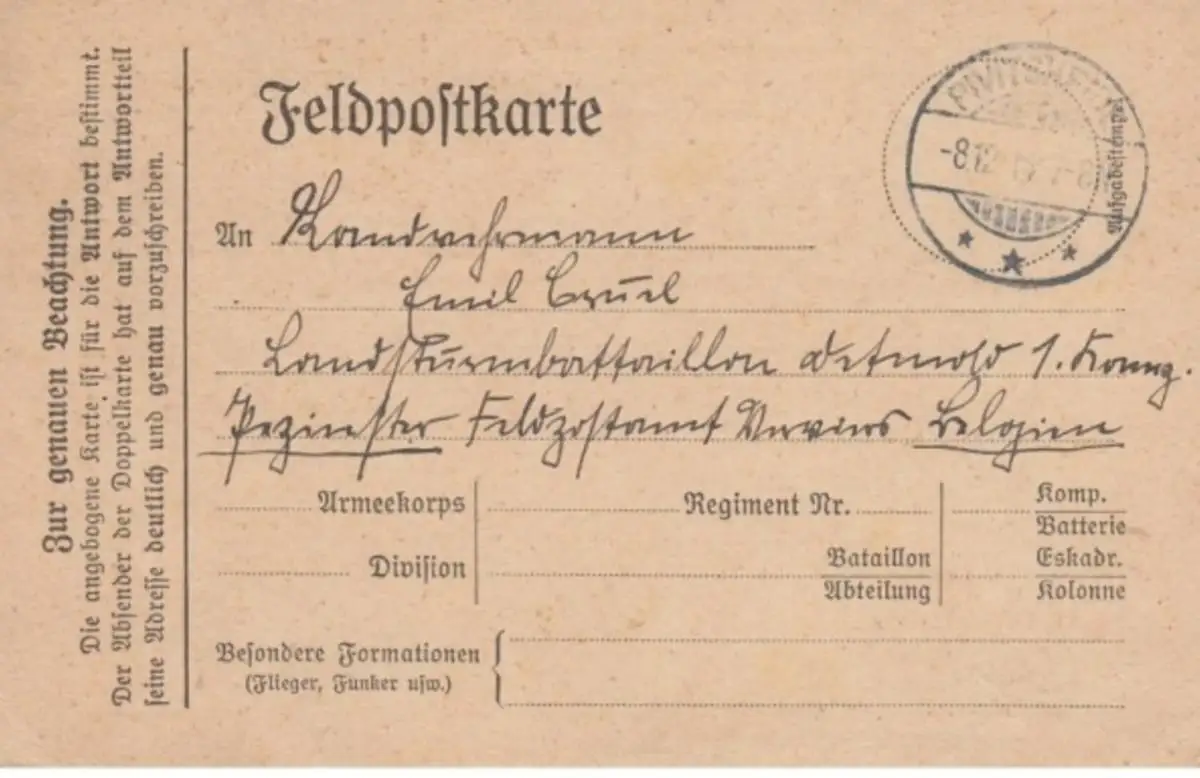 Zur genauen Beachtung.
Die angebogene Karte ist für die Antwort bestimmt.
Der Absender der Doppelkarte hat auf dem Antwortteil
seine Adresse deutlich und genau vorzuschreiben.
Feldpostkarte
Aufgabestempel
-8.12. 7-8
An Landwehrmann
Emil
Landsturmbattaillon Detmold 1. Komp.
Pepinster Feldpostamt Verviers Belgien
Armeekorps
Regiment Nr.
Komp.
Batterie
Division
Bataillon
Abteilung
Eskadr.
Kolonne
Besondere Formationen
(Flieger, Funker usw.)